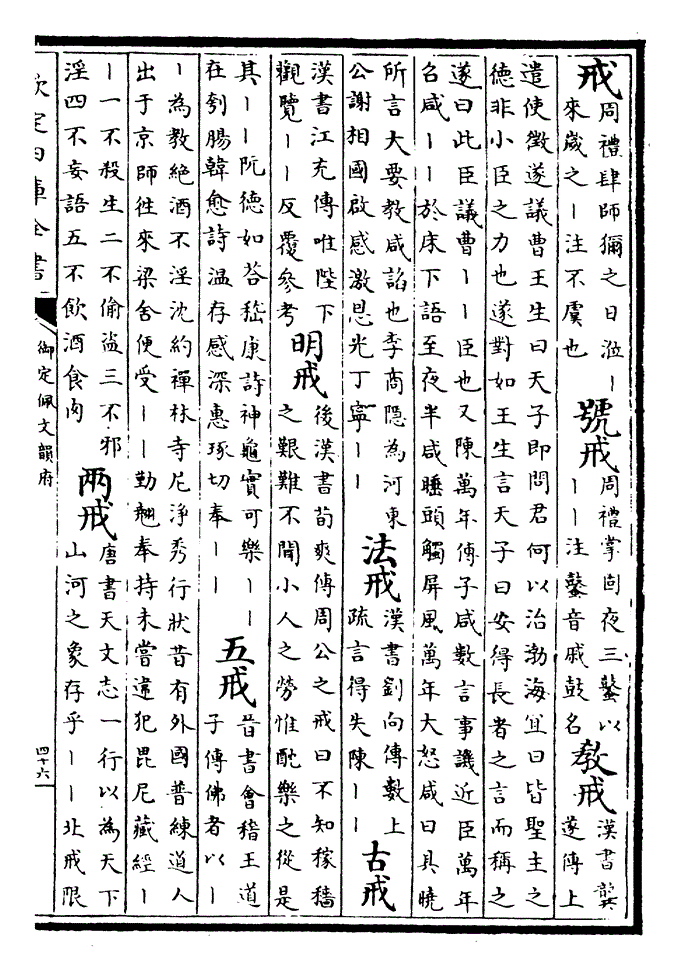 戒
周禮肆師獮之日涖丨
來嵗之丨注不虞也
號戒
周禮掌固夜三鼜以
丨丨注鼜音戚鼓名
敎戒
漢書龔
遂傳上
遣使徵遂議曹王生曰天子即問君何以治渤海宜曰皆聖主之
德非小臣之力也遂對如王生言天子曰安得長者之言而稱之
遂曰此臣議曹丨丨臣也又陳萬年傳子咸數言事譏近臣萬年
名咸丨丨於床下語至夜半咸睡頭觸屏風萬年大怒咸曰具曉
所言大要教咸諂也李商隱為河東
公謝相國啟感激恩光丁寧丨丨
法戒
漢書劉向傳數上
疏言得失陳丨丨
古戒
漢書江充傳唯陛下
觀覽丨丨反覆參考
明戒
後漢書荀爽傳周公之戒曰不知稼穡
之艱難不聞小人之勞惟酖樂之從是
其丨丨阮德如荅嵇康詩神龜實可樂丨丨
在刳腸韓愈詩温存感深惠琢切奉丨丨
五戒
晉書會稽王道
子傳佛者以丨
丨為教絶酒不淫沈約禪林寺尼浄秀行狀昔有外國普練道人
出于京師徃來梁舍便受丨丨勤翹奉持未嘗違犯毘尼藏經丨
丨一不殺生二不偷盗三不邪
淫四不妄語五不飲酒食肉
兩戒
唐書天文志一行以為天下
山河之象存乎丨丨北戒限
欽定四庫全書
御定佩文韻府
四十六